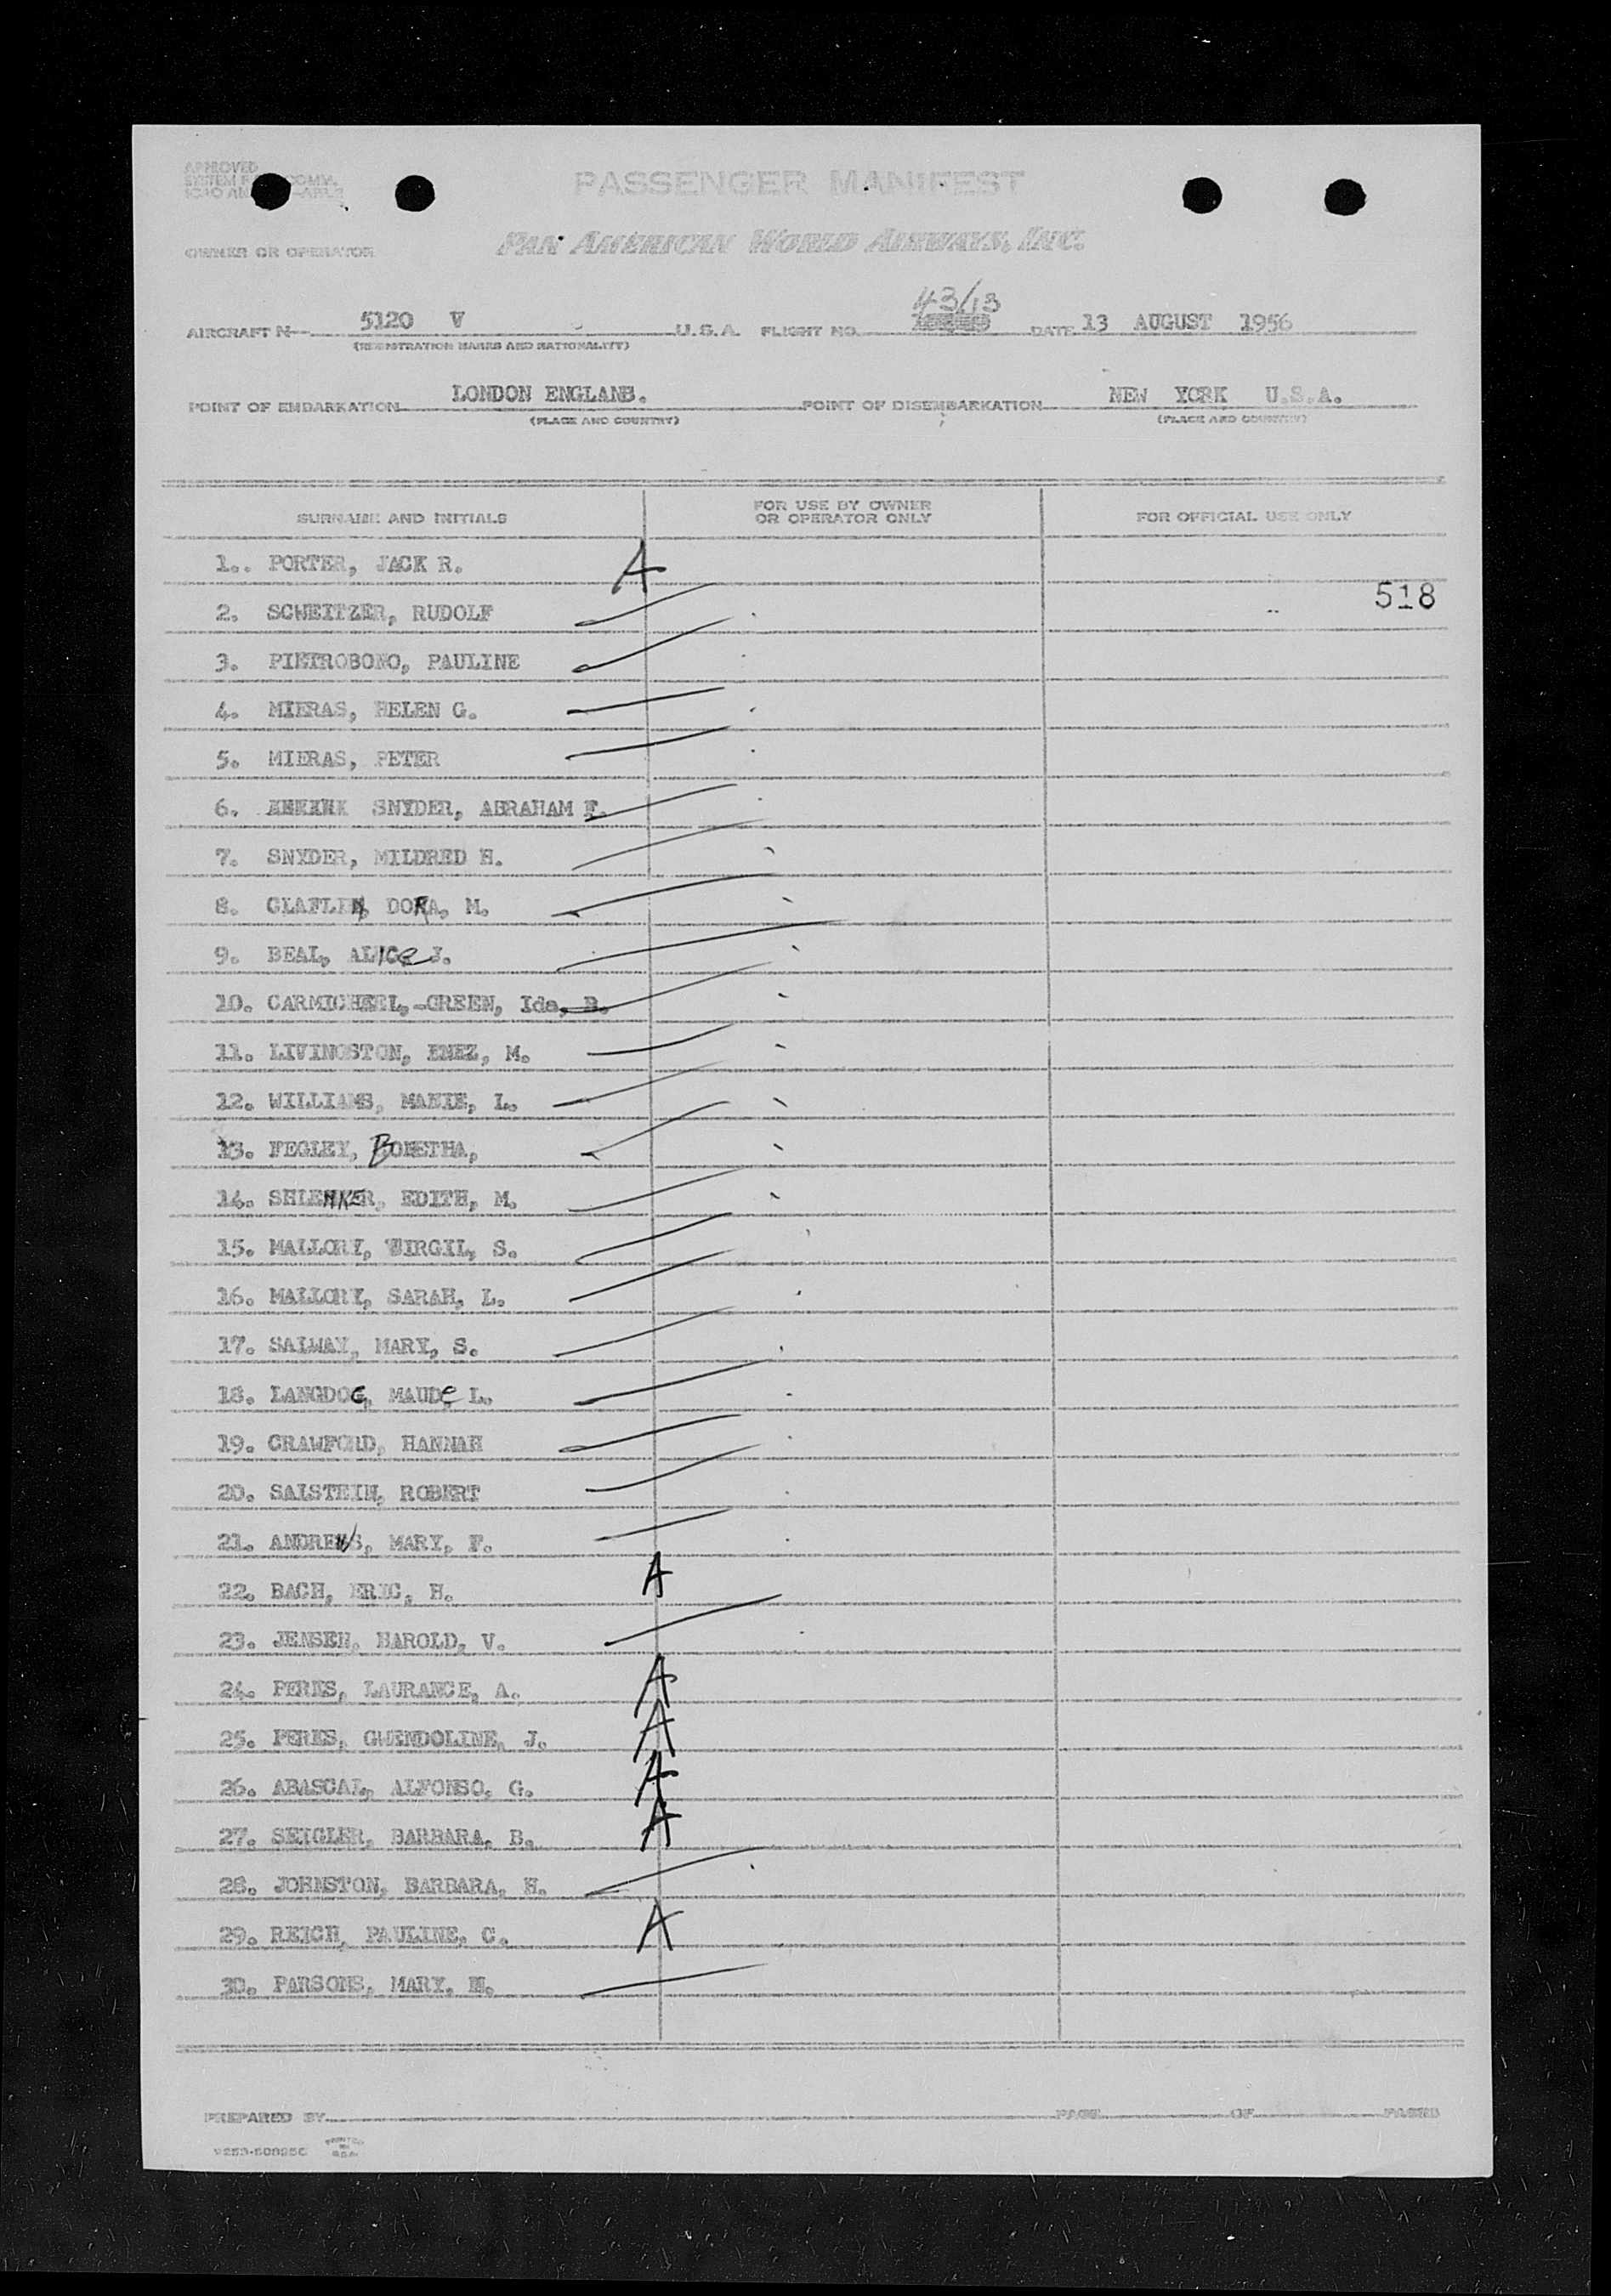 APPROVED
SYSTEM F COMM.
PASSENGER MANIFEST
OWNER OR OPERATOR PAN AMERICAN WORLD AIRWAYS, INC.
43/13
AIRCRAFT N 5120 V U.S.A. FLIGHT NO. DATE 13 AUGUST 1956
(REGISTRATION MARKS AND NATIONALITY)
POINT OF EMBARKATION LONDON ENGLAND. POINT OF DISEMBARKATION NEW YORK U.S.A.
(PLACE AND COUNTRY) (PLACE AND COUNTRY)
SURNAME AND INITIALS FOR USE BY OWNER OR OPERATOR ONLY FOR OFFICIAL USE ONLY
1.. PORTER, JACK R. A
518
2. SCWEITZER, RUDOLF
3. PIETROBONO, PAULINE
4. MIERAS, HELEN G.
5. MIERAS, PETER
6. SNYDER, ABRAHAM F.
7. SNYDER, MILDRED H.
8. CLAFLEN, DORA, M.
9. BEAL, ALICE J.
10. CARMICHEEL,-GREEN, Ida, B.
11. LIVINGSTON, ENEZ, M.
12. WILLIAMS, MARIE, L.
13. FEGLEY, BORETHA,
14. SHLENKER, EDITH, M.
15. MALLORY, VIRGIL, S.
16. MALLORY, SARAH, L.
17. SALWAY, MARY, S.
18. LANGDOC, MAUDE L.
19. CRAWFORD, HANNAH
20. SALSTEIN, ROBERT
21. ANDREWS, MARY, F.
22. BACH, ERIC, H. A
23. JENSEN, HAROLD, V.
24. PERES, LAURANCE, A. A
25. PERES, GWENDOLINE, J. A
26. ABASCAL, ALFONSO, G. A
27. SEIGLER, BARBARA, B. A
28. JOHNSTON, BARBARA, H.
29. REICH, PAULINE, C. A
30. PARSONS, MARY, M.
PREPARED BY PAGE OF PAGES
PRINTED IN U.S.A.